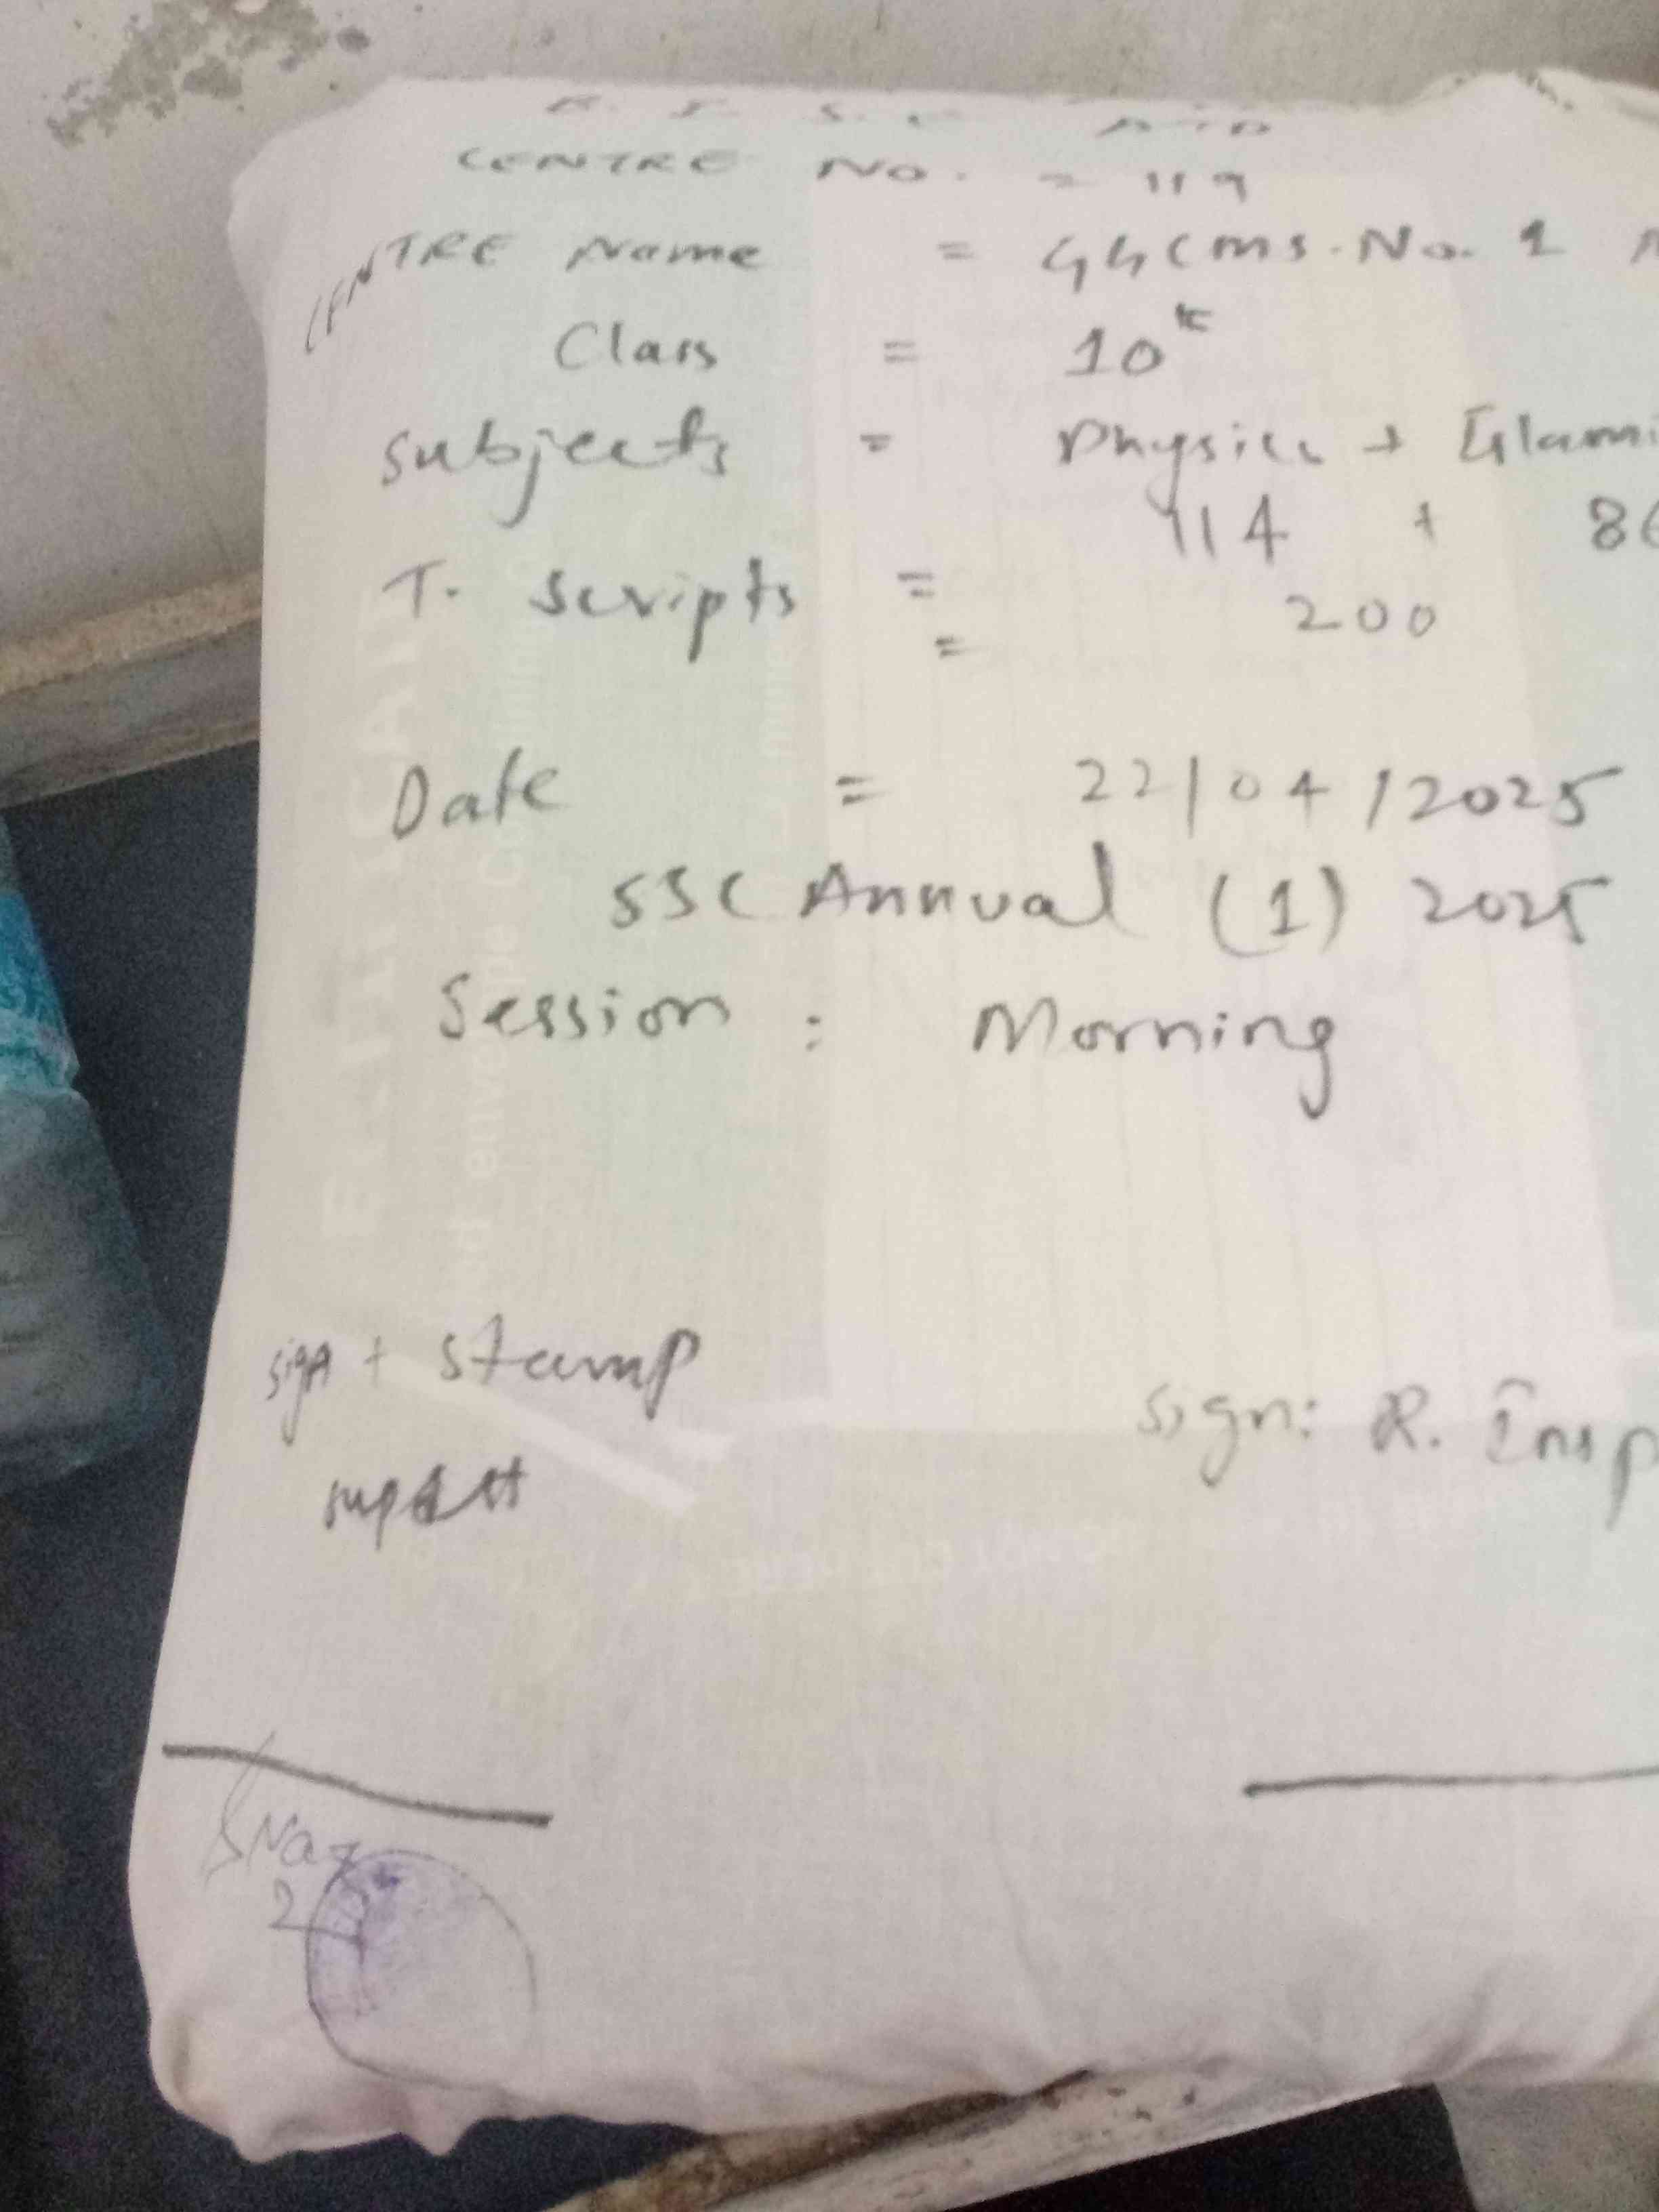 B. I. S. E ATD
CENTRE NO. = 119
CENTRE Name = GHCMS. No. 1
Class = 10th
Subjects = Physics + Islami
114 + 86
T. Scripts =
= 200
Date = 22/04/2025
SSC Annual (1) 2025
Session : Morning
sign + stamp
Sign: R. Insp
supdtt